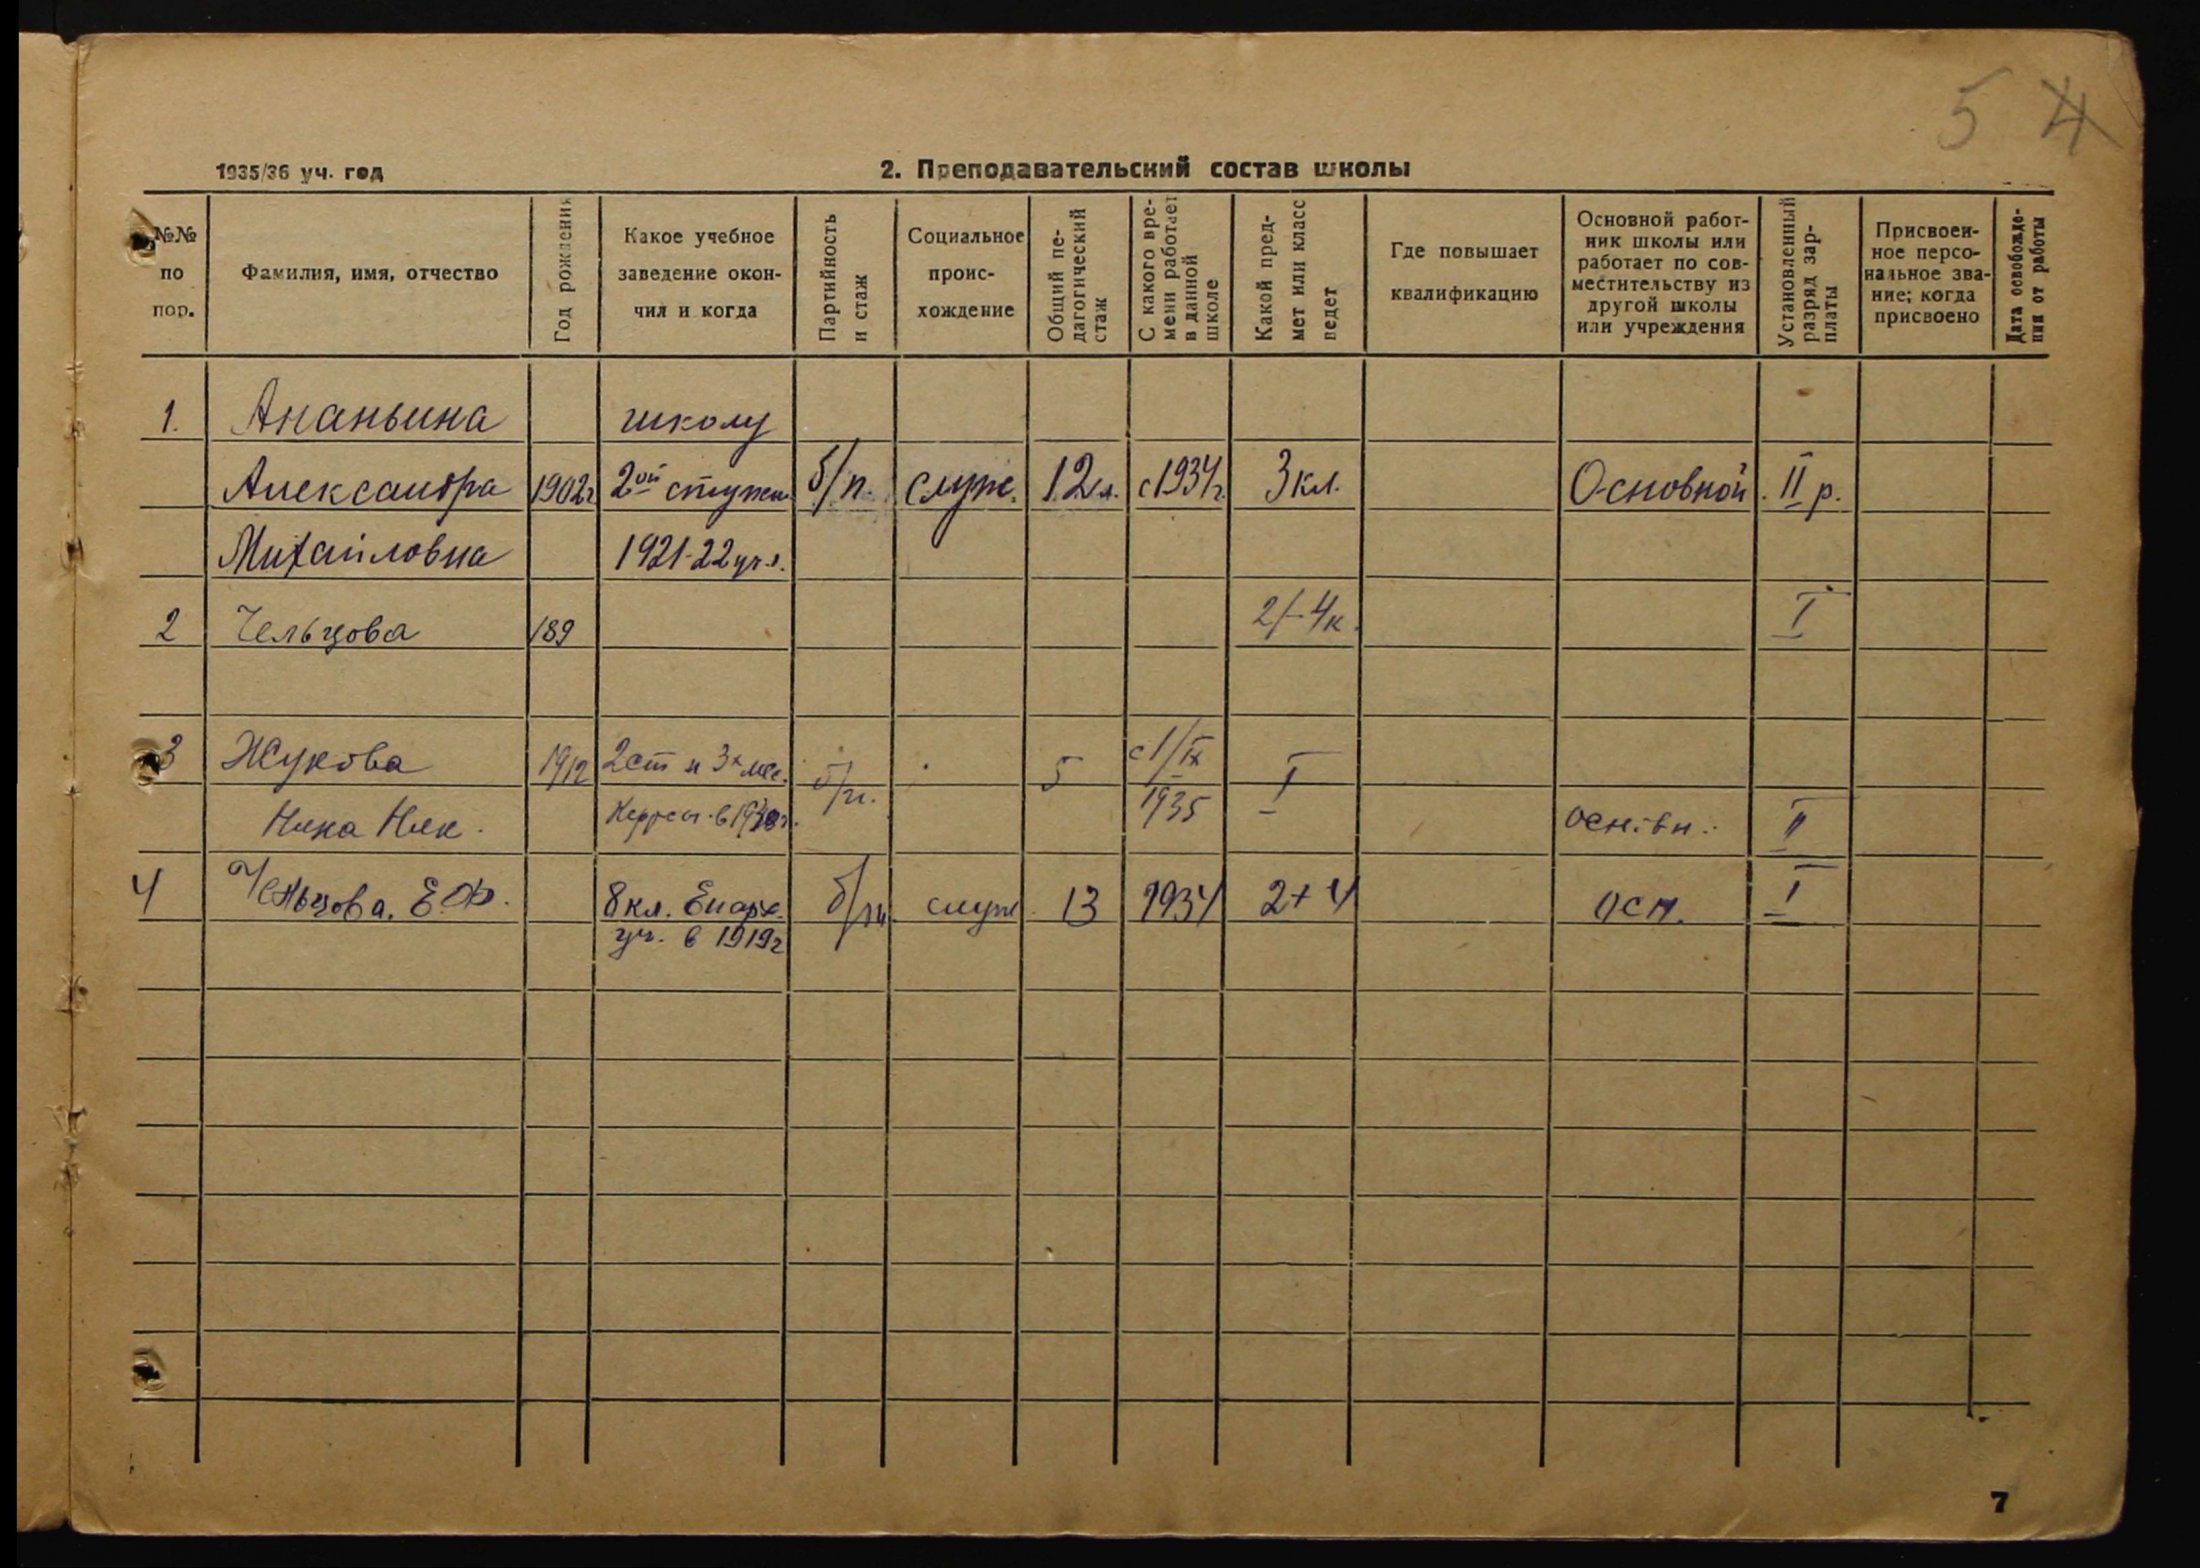 5 4
1935/36 уч. год
2. Преподавательский состав школы
№№ по пор.
Фамилия, имя, отчество
Год рождения
Какое учебное заведение окончил и когда
Партийность и стаж
Социальное происхождение
Общий педагогический стаж
С какого времени работает в данной школе
Какой предмет или класс ведет
Где повышает квалификацию
Основной работник школы или работает по совместительству из другой школы или учреждения
Установленный разряд зарплаты
Присвоенное персональное звание; когда присвоено
Дата освобождения от работы
1. Ананьина школу
Александра 1902г 2ой ступен. б/п. служ. 12л. с 1934г. 3 кл. Основной. II р.
Михайловна 1921-22 уч.г.
2 Чельцова 189 2/-4к. I
3 Жукова 1912 2 ст и 3х мес. б/п. 5 с 1/IX 1935 I
Нина Ник. в основн. II
4 Чельцова. Е.Ф. 8 кл. Епарх. б/п. служ 13 1934 2+4 осн. I
уч. в 1919г
7